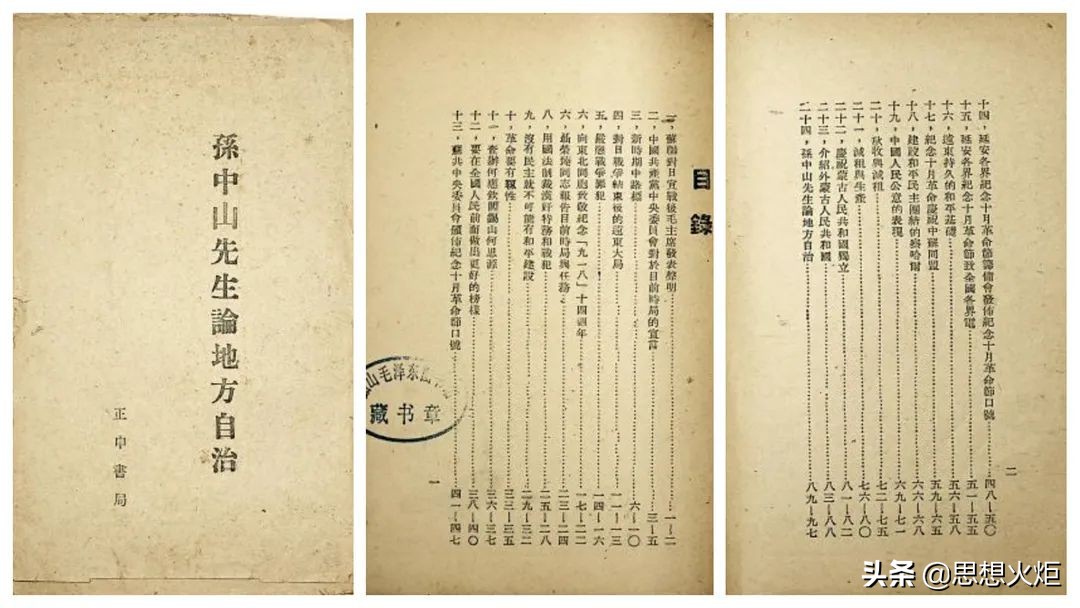 孫中山先生論地方自治
正中書局
目錄
一，蘇聯對日宣戰後毛主席發表聲明……一—二
二，中國共產黨中央委員會對於目前時局的宣言……三—五
三，新時期中路標……六—一〇
四，對日戰爭結束後的遠東大局……一一—一三
五，嚴懲戰爭罪犯……一四—一六
六，向東北同胞致敬紀念「九一八」十四週年……一七—二二
六，聶榮臻同志報告目前時局與任務……二三—二四
八，用國法制裁漢奸特務和戰犯……二五—二八
九，沒有民主就不可能有和平建設……二九—三二
十，革命要有靱性……三三—三五
十一，查辦何應欽閻錫山何思源……三六—三七
十二，要在全國人民前面做出更好的榜樣……三八—四〇
十三，蘇共中央委員會頒佈紀念十月革命節口號……四一—四七
一
山毛泽东
藏书章
十四，延安各界紀念十月革命節籌備會發佈紀念十月革命節口號……四八—五〇
十五，延安各界紀念十月革命節致全國各界電……五一—五五
十六，遠東持久的和平基礎……五六—五八
十七，紀念十月革命慶祝中蘇同盟……五九—六五
十八，建設和平民主團結的察哈爾……六六—六八
十九，中國人民公意的表現……六九—七一
二十，秋收與減租……七二—七五
二十一，減租與生產……七六—八〇
二十二，慶祝蒙古人民共和國獨立……八一—八二
二十三，介紹外蒙古人民共和國……八三—八八
二十四，孫中山先生論地方自治……八九—九七
二
头条 @思想火炬